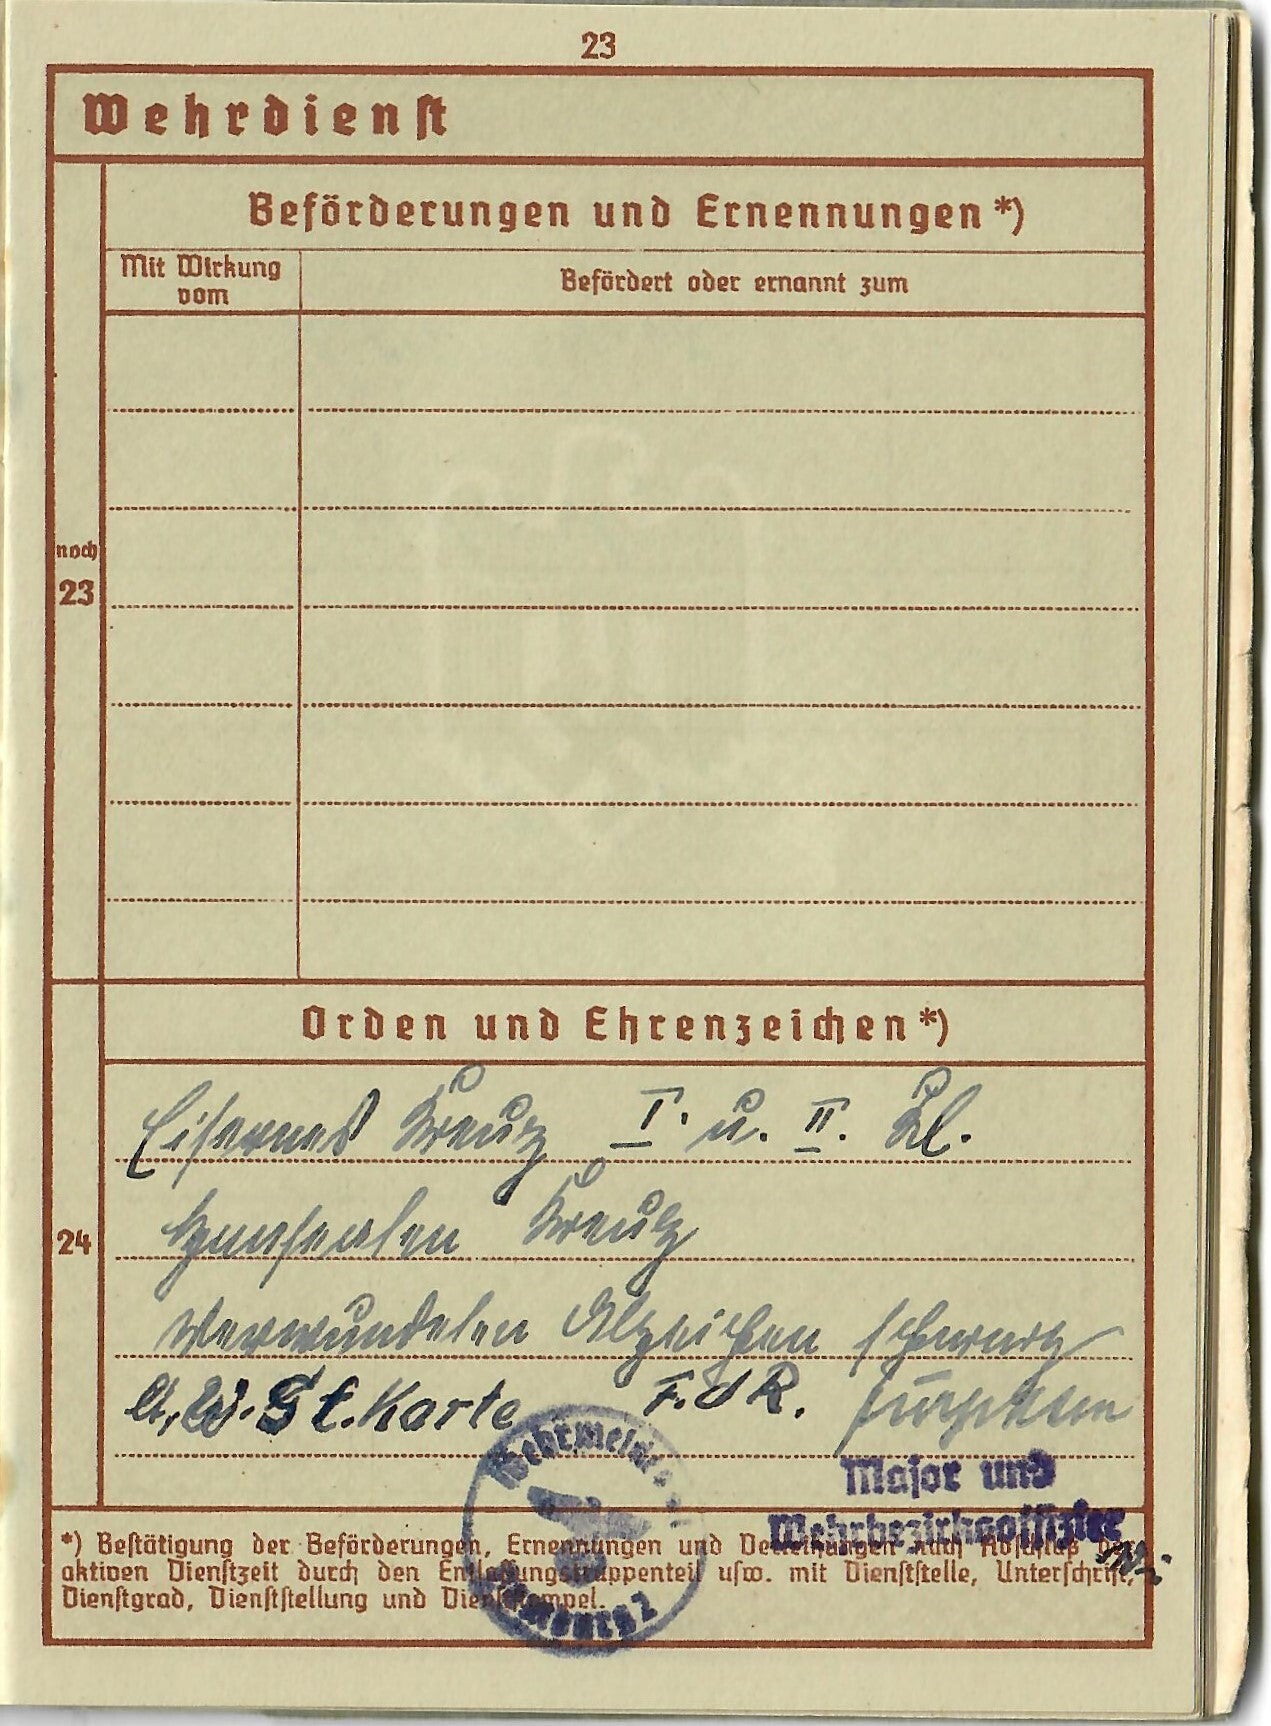 23
Wehrdienst
Beförderungen und Ernennungen *)
Mit Wirkung vom
Befördert oder ernannt zum
noch
23
Orden und Ehrenzeichen *)
Eisernes Kreuz I. u. II. Kl.
24
Hanseaten Kreuz
Verwundeten Abzeichen schwarz
lt. W. St. Karte F.d.R.
Major und
Wehrbezirksoffizier
Wehrmelde
2
*) Bestätigung der Beförderungen, Ernennungen und Verleihungen nach Abschluß der
aktiven Dienstzeit durch den Entlassungstruppenteil usw. mit Dienststelle, Unterschrift,
Dienstgrad, Dienststellung und Dienststempel.